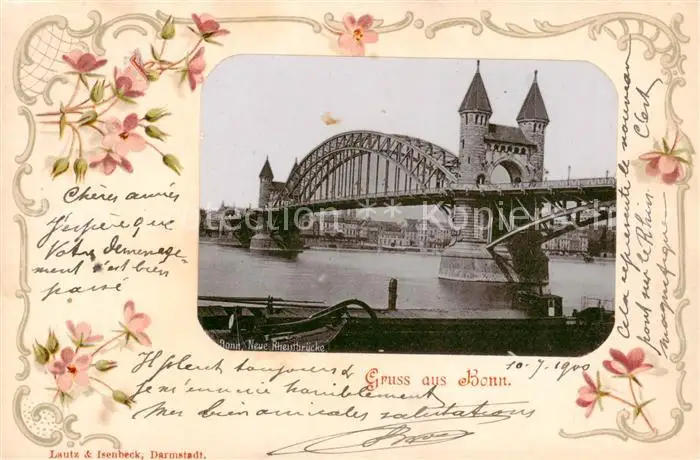 Gruss aus Bonn
Chères amies
J'espère que
Votre demenage-
ment s'est bien
passé
Bonn, Neue Rheinbrücke
Gruss aus Bonn.
10-7-1900
Il pleut toujours &
je m'ennuie horriblement
Mes bien amicales salutations
Cela représente le nouveau
pont sur le Rhin.
magnifique
Lautz & Isenbeck, Darmstadt.
Collection * Kpienle